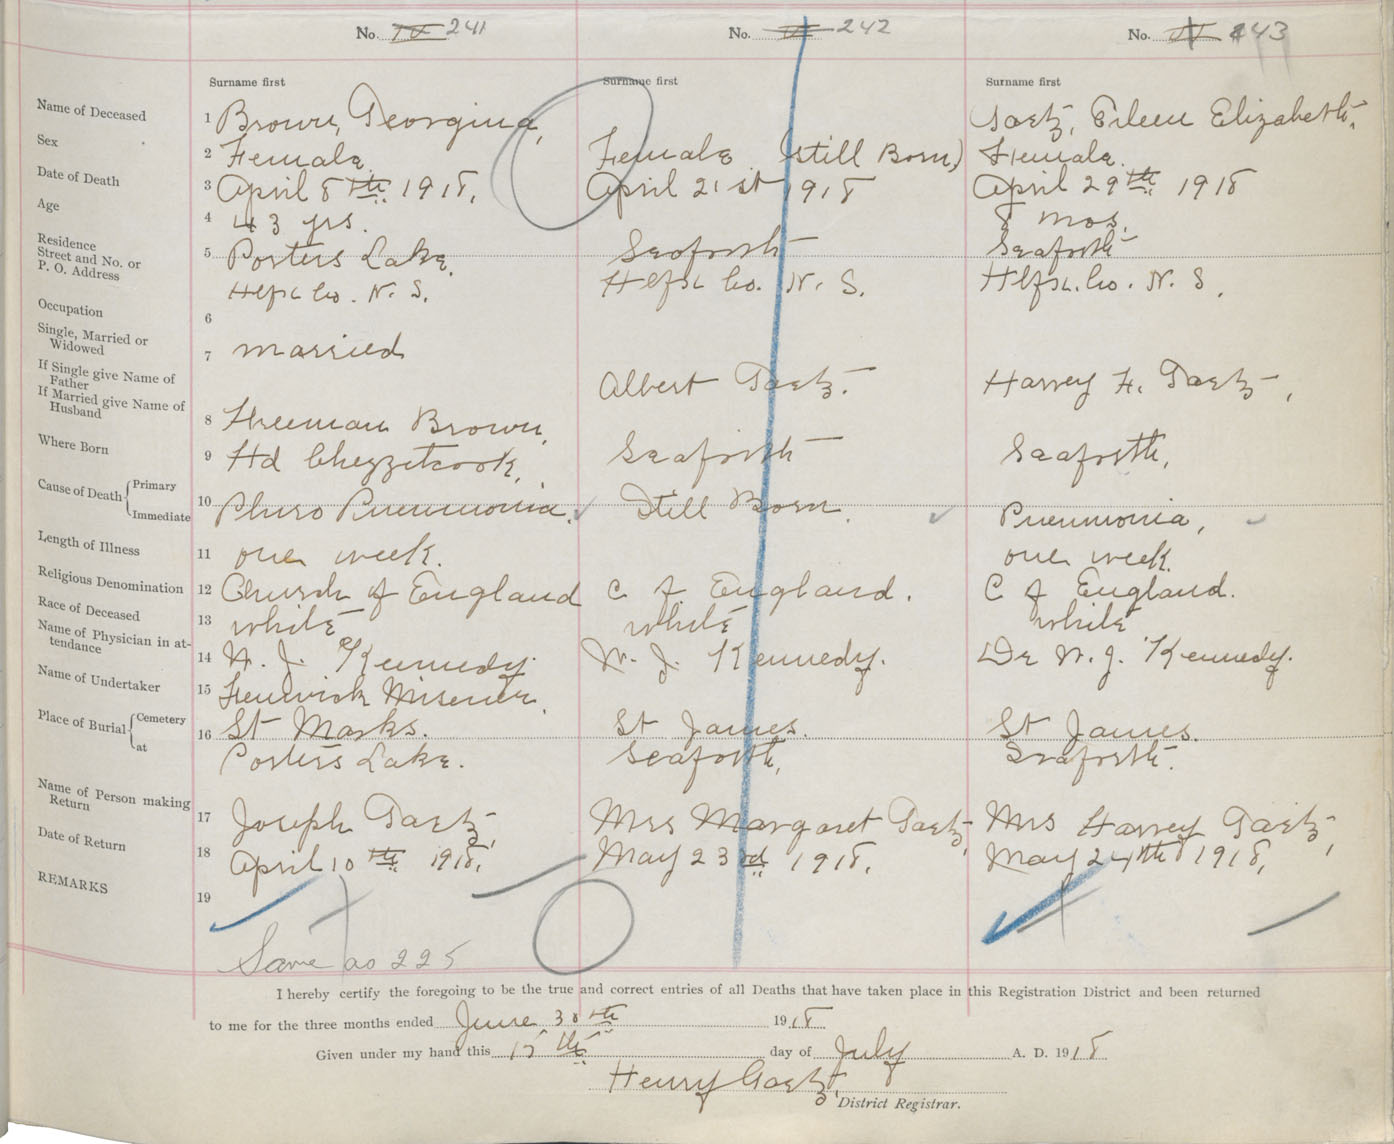 No. 241 No. 242 No. 243
Surname first Surname first Surname first
Name of Deceased 1 Brown, Georgina, Gaetz, Eileen Elizabeth.
Sex 2 Female. Female (Still Born) Female.
Date of Death 3 April 8th 1918. April 21st 1918 April 29th 1918
Age 4 43 yrs. 8 mos.
Residence
Street and No. or 5 Porters Lake. Seaforth Seaforth
P. O. Address Hlfx Co. N. S. Hlfx Co. N. S. Hlfx. Co. N. S.
Occupation 6
Single, Married or
Widowed 7 married
If Single give Name of
Father Albert Gaetz. Harvey H. Gaetz,
If Married give Name of
Husband 8 Freeman Brown,
Where Born 9 Hd Chezzetcook, Seaforth Seaforth,
Cause of Death Primary 10 Pluro Pneumonia. Still Born. Pneumonia,
Immediate
Length of Illness 11 one week. one week.
Religious Denomination 12 Church of England C of England. C of England.
Race of Deceased 13 white white white
Name of Physician in at-
tendance 14 W. J. Kennedy. W. J. Kennedy. Dr W. J. Kennedy.
Name of Undertaker 15 Fenwick Misener.
Place of Burial Cemetery 16 St Marks. St James. St James.
at Porters Lake. Seaforth, Seaforth.
Name of Person making
Return 17 Joseph Gaetz, Mrs Margaret Gaetz, Mrs Harvey Gaetz,
Date of Return 18 April 10th 1918. May 23rd 1918. May 24th 1918,
REMARKS 19
Same as 225
I hereby certify the foregoing to be the true and correct entries of all Deaths that have taken place in this Registration District and been returned
to me for the three months ended June 30th 1918
Given under my hand this 15th day of July A. D. 1918
Henry Gaetz,
District Registrar.